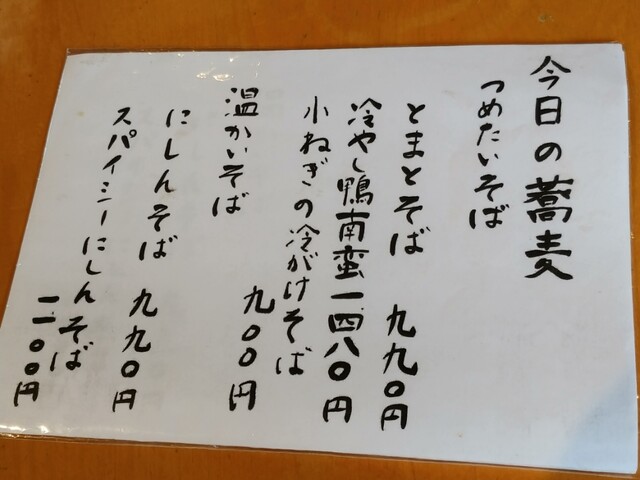 今日の蕎麦
つめたいそば
とまとそば 九九〇円
冷やし鴨南蛮 一四八〇円
小ねぎの冷がけそば
九〇〇円
温かいそば
にしんそば 九九〇円
スパイシーにしんそば
一一〇〇円